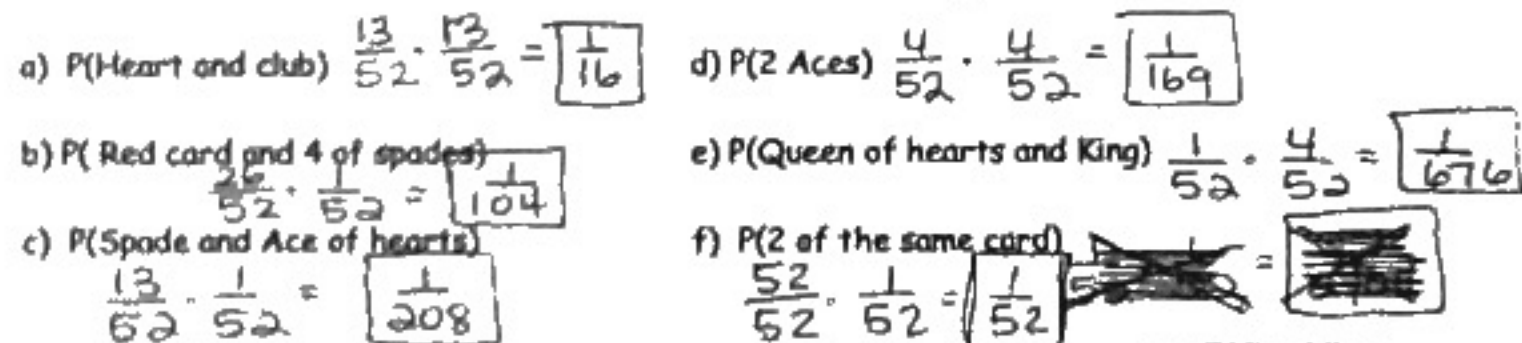 a) P(Heart and club) 13/52 · 13/52 = 1/16
b) P( Red card and 4 of spades) 26/52 · 1/52 = 1/104
c) P(Spade and Ace of hearts) 13/52 · 1/52 = 1/208
d) P(2 Aces) 4/52 · 4/52 = 1/169
e) P(Queen of hearts and King) 1/52 · 4/52 = 1/676
f) P(2 of the same card) 52/52 · 1/52 = 1/52 =